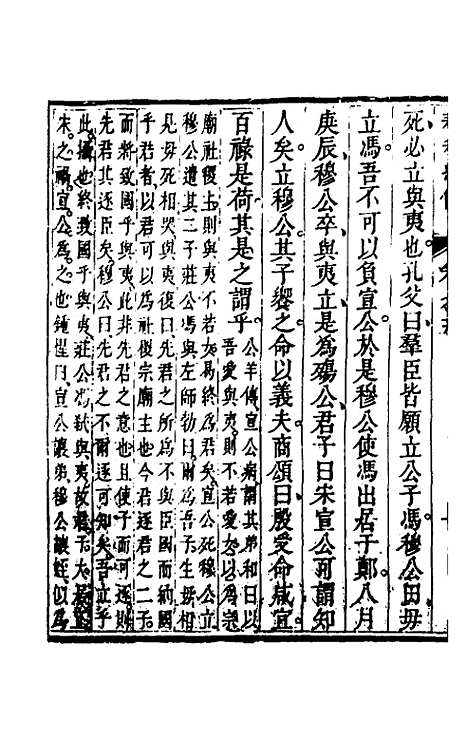 死必立與夷也孔父曰羣臣皆願立公子馮穆公曰毋
立馮吾不可以負宣公於是穆公使馮出居于鄭八月
庚辰穆公卒與夷立是為殤公君子曰宋宣公可謂知
人矣立穆公其子饗之命以義夫商頌曰殷受命咸宜
百祿是荷其是之謂乎
公羊傳宣公病謂其弟和曰以
吾愛與夷則不若愛女以為宗
廟社稷主則與夷不若女易終為君矣宣公死穆公立
穆公遺其二子莊公馮與左師勃曰爾為吾子生毋相
見毋死相哭與夷復曰先君之所為不與臣國而納國
乎君者以君可以為社稷宗廟主也今君逐君之二子
而將致國乎與夷此非先君之意也且使子而可逐則
先君其逐臣矣穆公曰先君之不爾逐可知矣吾立乎
此攝也終致國乎與夷莊公馮弒與夷故君子大居正
宋之禍宣公為之也鍾惺曰宣公讓弟穆公讓姪似為